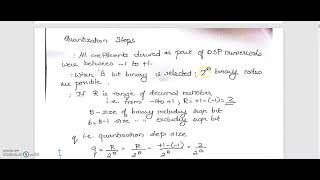 Quantization Steps
: All coefficients derived as part of DSP numericals
were between -1 to +1.
: When 'B' bit binary is selected; 2^B binary codes
are possible.
: If R is range of decimal number
i.e. from -1 to +1; R = +1-(-1) = 2
B - size of binary including sign bit
b = B-1 size " " excluding sign bit
q i.e. quantisation step size
q = R/2^B = R/2^B = +1-(-1)/2^B = 2/2^B